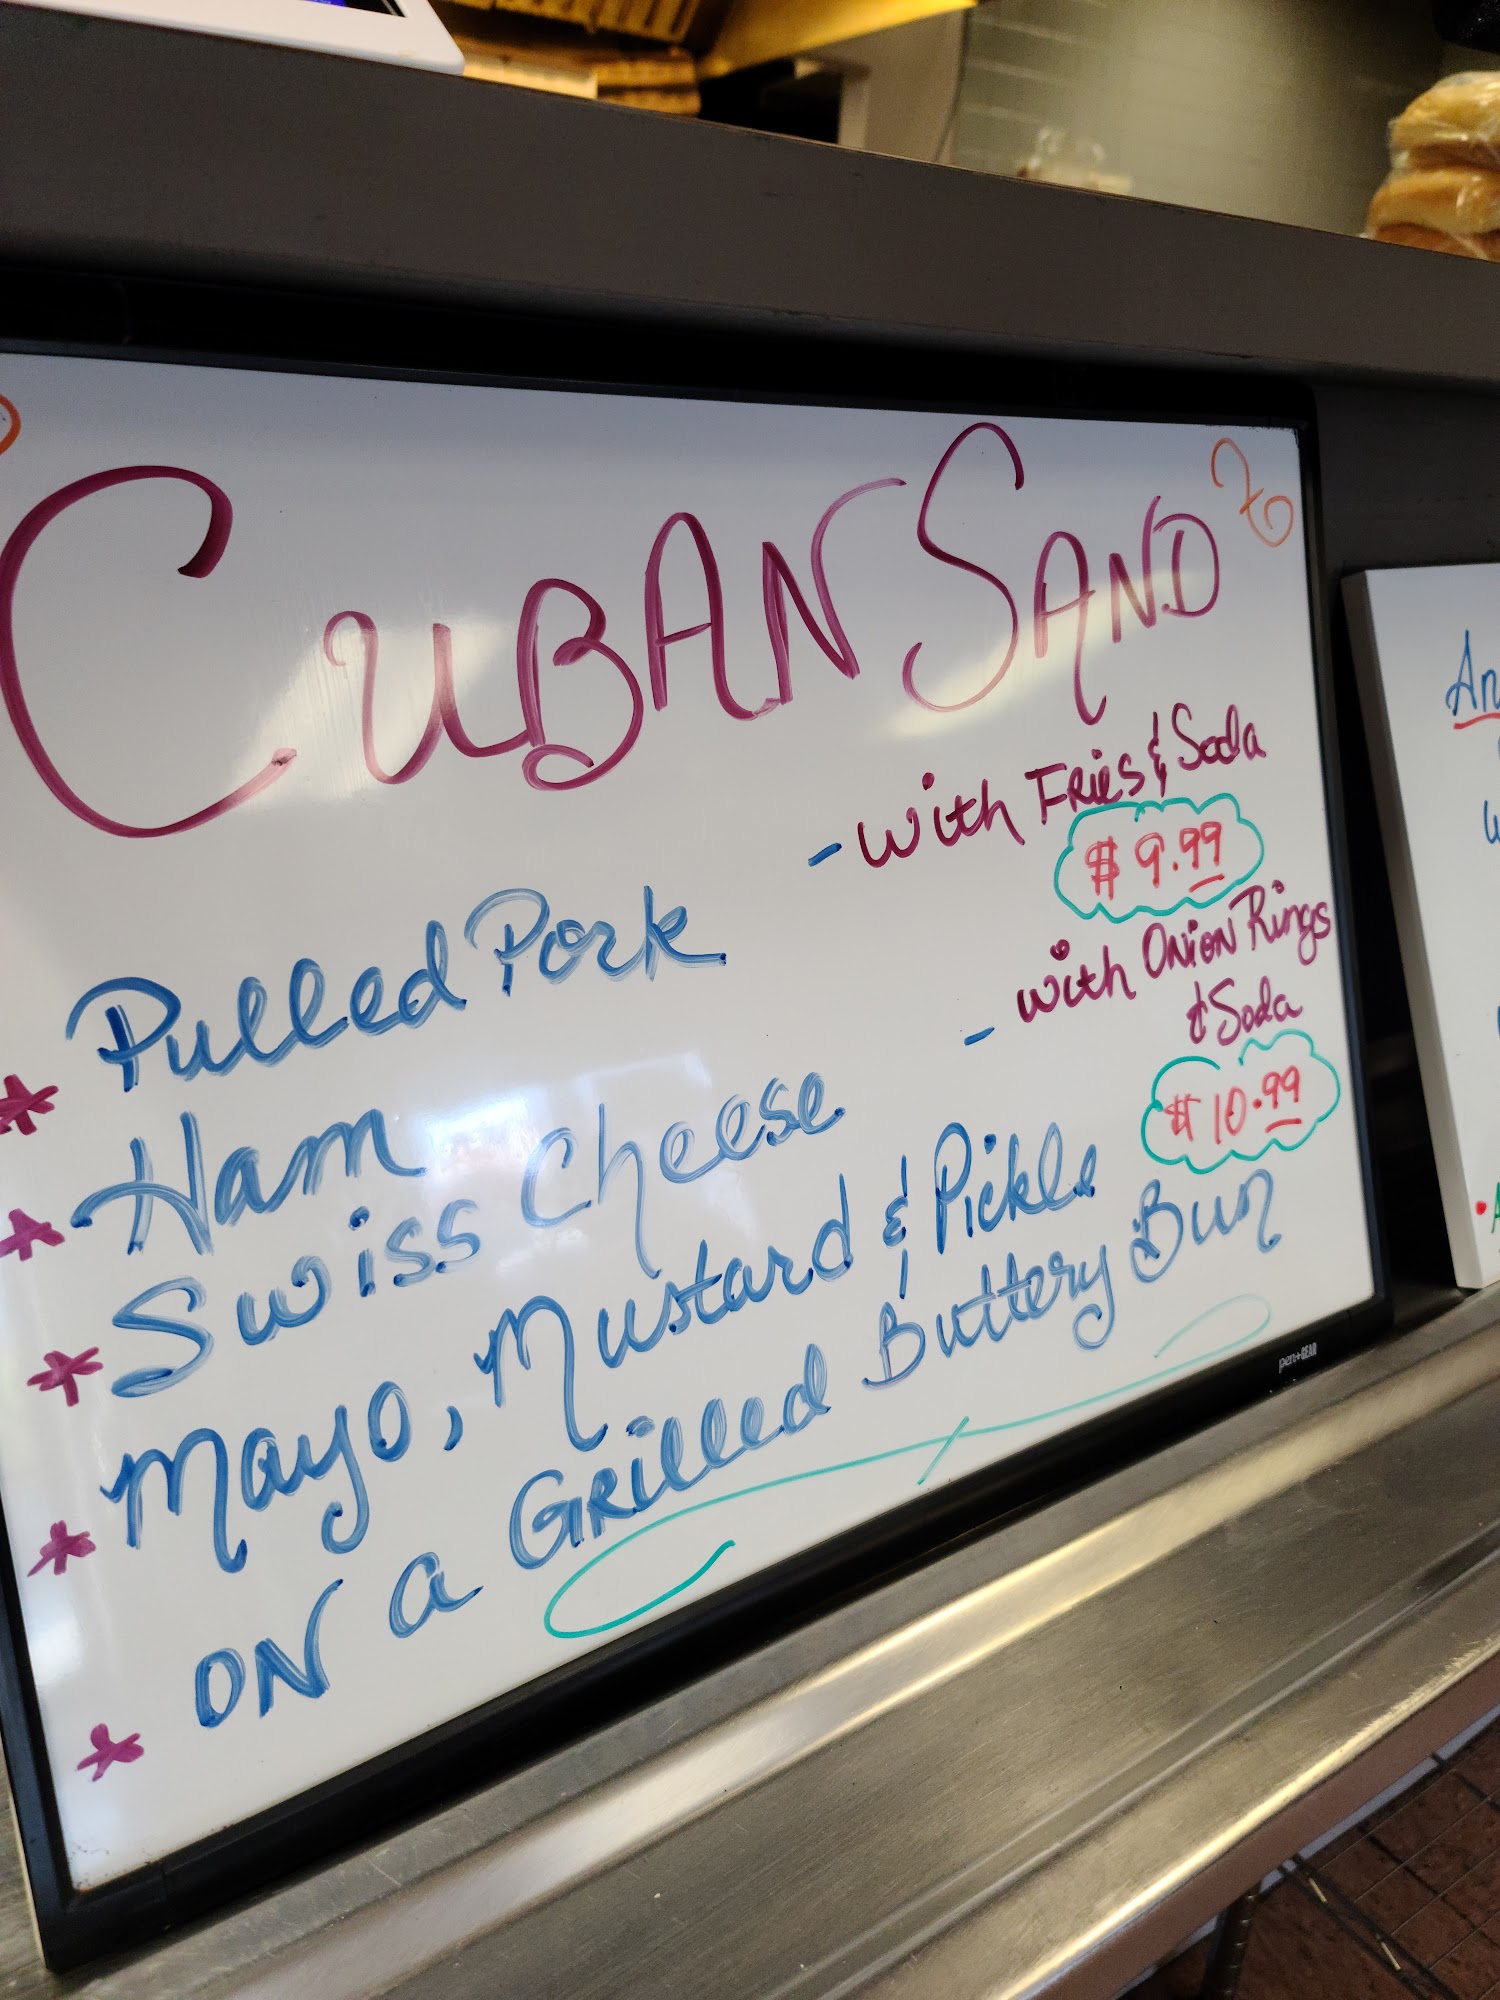 CUBAN SAND
- with Fries & Soda
$ 9.99
- with Onion Rings
& Soda
$ 10.99
* Pulled Pork
* Ham
* Swiss Cheese
* Mayo, Mustard & Pickle
* ON a GRilled Buttery Bun
pen+GEAR
An